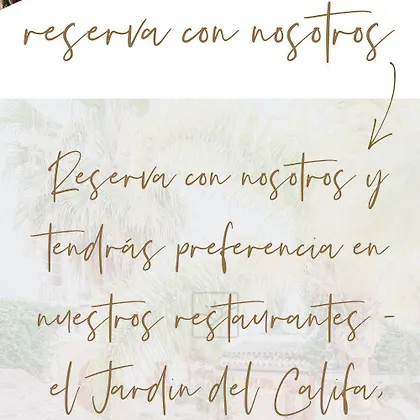 reserva con nosotros
Reserva con nosotros y
tendrás preferencia en
nuestros restaurantes -
el Jardin del Califa,